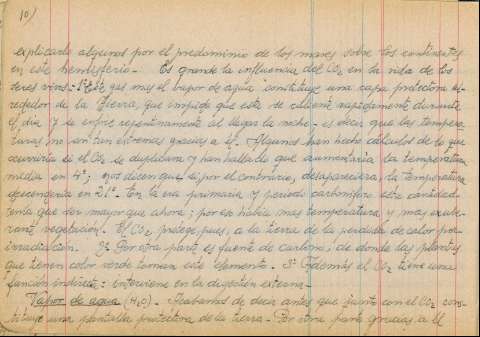 10)
explicarlo algunos por el predominio de los mares sobre los continentes
en este hemisferio. - Es grande la influencia del CO2 en la vida de los
seres vivos. - 1º Este gas mas el vapor de agua constituye una capa protectora al-
rededor de la tierra, que impide que esta se caliente rapidamente durante
el dia y se enfrie repentinamente al llegar la noche - es decir que las tempera-
turas no son tan extremas gracias a él. Algunos han hecho cálculos de lo que
ocurriria si el CO2 se duplicara y han hallado que aumentaria la temperatura
media en 4º; nos dicen que si por el contrario, desapareciera, la temperatura
descenderia en 21º. En la era primaria y periodo carbonifero esta cantidad
tenia que ser mayor que ahora; por eso habia mas temperatura y mas exube-
rante vegetacion. El CO2 protege, pues, a la tierra de la perdida de calor por
irradiación. 2º Por otra parte es fuente de carbono, de donde las plantas
que tienen color verde toman este elemento. 3º Además el CO2 tiene una
función indirecta: interviene en la digestión externa.
Vapor de agua (H2O). - Acabamos de decir antes que junto con el CO2 cons-
tituye una pantalla protectora de la tierra. - Por otra parte gracias a él